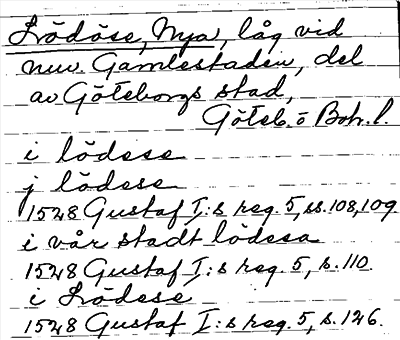 Lödöse, Nya, låg vid
nuv. Gamlestaden, del
av Göteborgs stad,
Göteb. o Boh. l.
i lödese
j lödese
1528 Gustaf I:s reg. 5, ss. 108, 109
i vår stadt lödesa
1528 Gustaf I:s reg. 5, s. 110.
i Lödese
1528 Gustaf I:s reg. 5, s. 126.